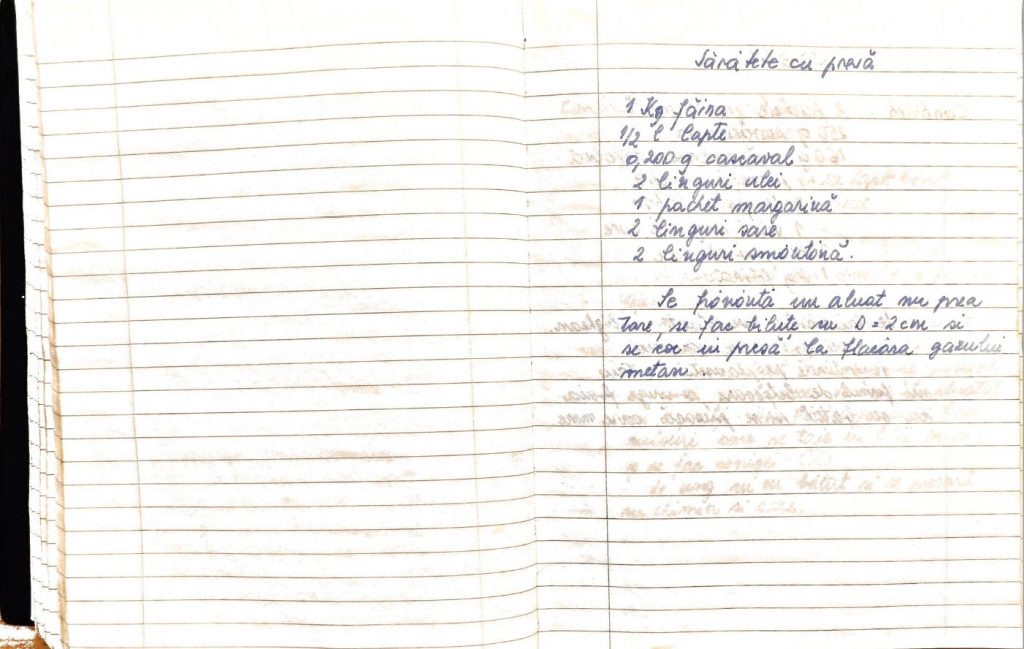 Sărățele cu presă
1 Kg făina
1/2 l lapte
0,200 g cascaval
2 linguri ulei
1 pachet margarină
2 linguri sare
2 linguri smântână.
Se frământă un aluat nu prea
tare, se fac bilute cu D = 2 cm si
se coc in presă, la flacăra gazului
metan.